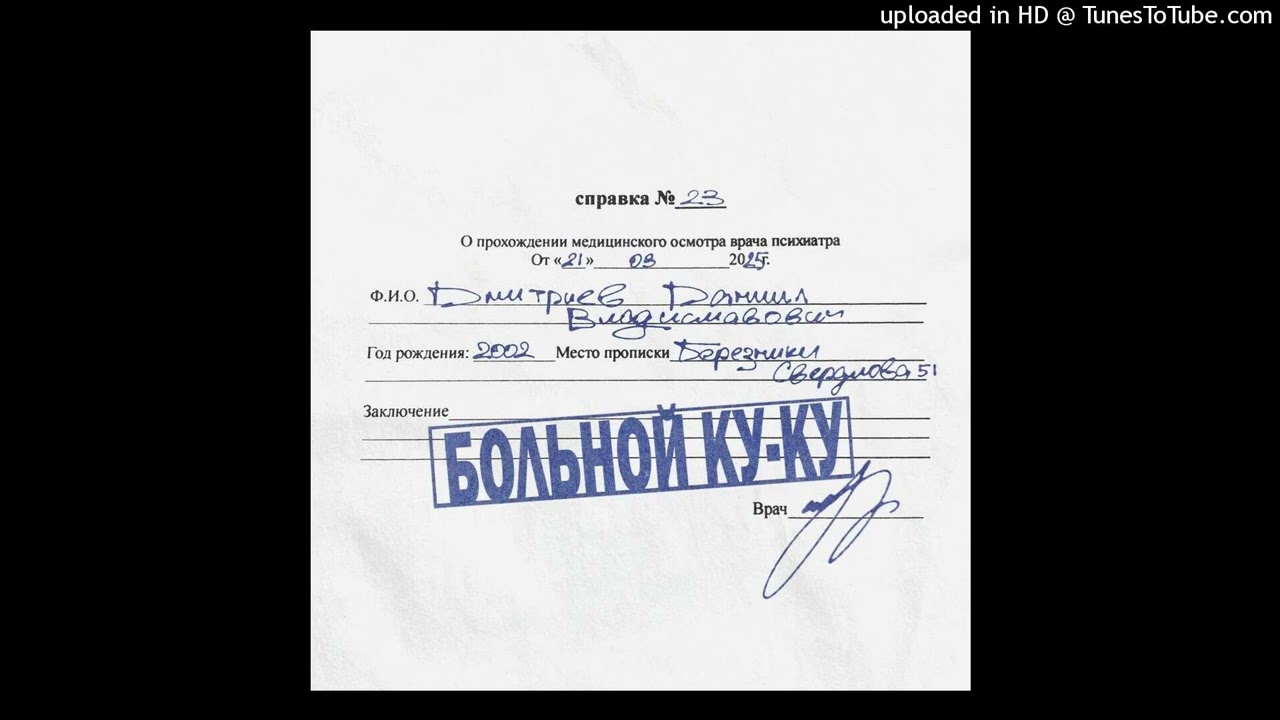 uploaded in HD @ TunesToTube.com
справка № 23
О прохождении медицинского осмотра врача психиатра
От «21» 03 2025г.
Ф.И.О. Дмитриев Даниил
Владиславович
Год рождения: 2002 Место прописки Березники
Свердлова 51
Заключение
БОЛЬНОЙ КУ-КУ
Врач